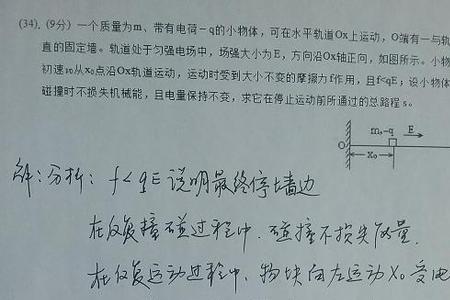 (34). (9分) 一个质量为m、带有电荷－q的小物体，可在水平轨道Ox上运动，O端有一与轨
直的固定墙。轨道处于匀强电场中，场强大小为E，方向沿Ox轴正向，如图所示。小物
初速v₀从x₀点沿Ox轨道运动，运动时受到大小不变的摩擦力f作用，且f<qE；设小物体
碰撞时不损失机械能，且电量保持不变，求它在停止运动前所通过的总路程 s。
m,-q E
O
X₀
解：分析：f<qE说明最终停墙边
在反复撞碰过程中，碰撞不损失能量，
在反复运动过程中，物块向左运动X₀受电